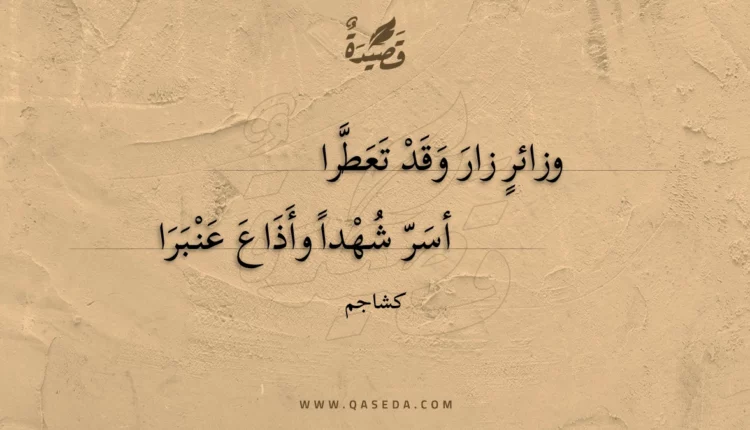 قَصِيْدَةٌ
وزائرٍ زارَ وَقَدْ تَعَطَّرا
أسَرّ شُهْداً وأَذَاعَ عَنْبَرَا
كشاجم
WWW.QASEDA.COM